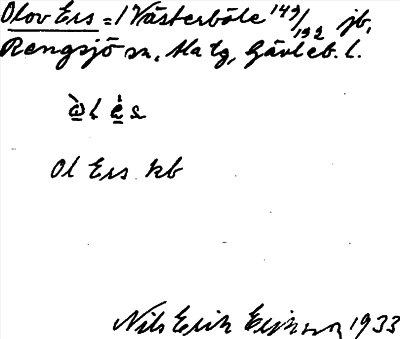 Olov Ers = 1 Västerböle 149/192 jb,
Rengsjö sn, Ala tg, Gävleb. l.
Ol Ers kb
Nils Erik Eriksson 1933